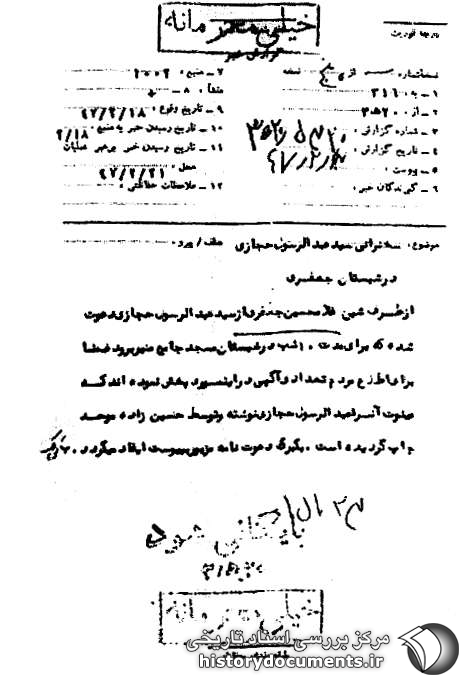 خیلی محرمانه
گزارش خبر
درجه فوریت
شماره از پنج نسخه
۱ – به ۳۱۶
۲ – از ۳۵۲۰۰
۳ – شماره گزارش
۴ – تاریخ گزارش
۵ – پیوست
۶ – گیرندگان خبر
۷ – منبع ۱۰۰۲
منشأ ۸ –
۹ – تاریخ وقوع ۴۷/۲/۱۸
۱۰ – تاریخ رسیدن خبر به منبع ۲/۱۸
۱۱ – تاریخ رسیدن خبر برهبر عملیات
محل ۴۷/۲/۲۱
۱۲ – ملاحظات حفاظتی
موضوع سخنرانی سید عبدالرسول حجازی عطف / پیرو
در شبستان جعفری
از طرف شیخ غلامحسین جعفری از سید عبدالرسول حجازی دعوت
شده که برای مدت ۱۰ شب در شبستان مسجد جامع منبر برود ضمنا
برای اطلاع مردم تعدادی آگهی در این مورد پخش نموده اند که
صورت آنرا عبدالرسول حجازی نوشته و توسط حسین زاده موحد
چاپ گردیده است . یکبرگ دعوت نامه مزبور بپیوست ایفاد میگردد .
بایگانی شود
خیلی محرمانه
مرکز بررسی اسناد تاریخی
historydocuments.ir